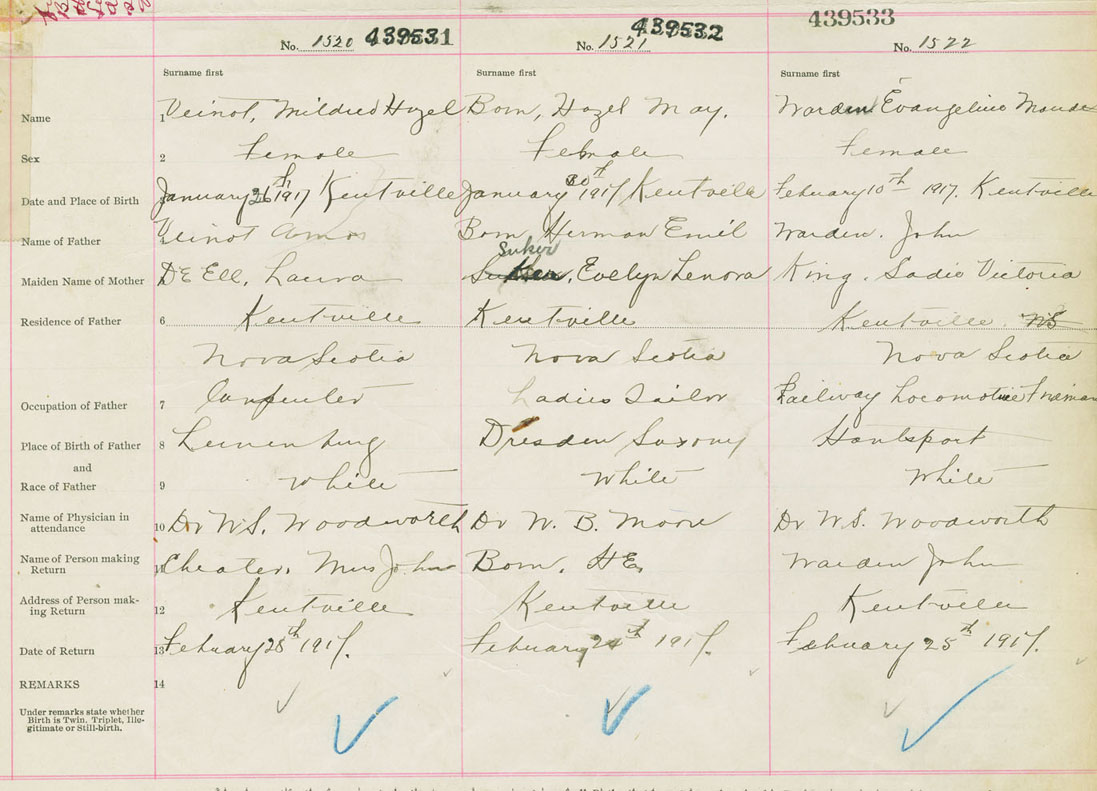 No. 1520 439531 No. 1521 439532 No. 1522 439533
Surname first Surname first Surname first
Name 1 Veinot, Mildred Hazel Born, Hazel May. Warden Evangeline Maude
Sex 2 Female Female Female
Date and Place of Birth January 26th 1917 Kentville January 30th 1917 Kentville Febuary 10th 1917. Kentville
Name of Father Veinot Amos Born Herman Emil Warden. John
Suker
Maiden Name of Mother DeEll, Laura Evelyn Lenora King. Sadie Victoria
Residence of Father 6 Kentville Kentville Kentville. NS
Nova Scotia Nova Scotia Nova Scotia
Occupation of Father 7 Carpenter Ladies Tailor Railway Locomotive Fireman
Place of Birth of Father 8 Lunenburg Dresden Saxony Hantsport
and
Race of Father 9 White White White
Name of Physician in
attendance 10 Dr W.S. Woodworth Dr W. B. Moore Dr W.S. Woodworth
Name of Person making
Return 11 Cheater. Mrs John Born. HE. Warden John
Address of Person mak-
ing Return 12 Kentville Kentville Kentville
Date of Return 13 Febuary 28th 1917. Febuary 24th 1917. Febuary 25th 1917.
REMARKS 14
Under remarks state whether
Birth is Twin, Triplet, Ille-
gitimate or Still-birth.